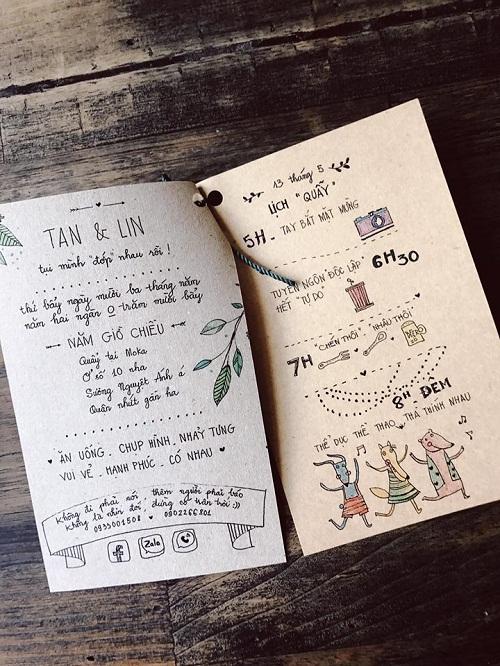 TAN & LIN
tụi mình "đớp" nhau rồi !
thứ bảy ngày mười ba tháng năm
năm hai ngàn 0 trăm mười bảy
NĂM GIỜ CHIỀU
Quẩy tại Moka
Ở số 10 nha
Sương Nguyệt Ánh á
Quận nhứt gần hà
ĂN UỐNG. CHỤP HÌNH. NHẢY TƯNG
VUI VẺ. HẠNH PHÚC. CÓ NHAU
Không đi phải nói, thêm người phải báo
không là nhịn đói, đừng có trăn trối :))
0933001501 0902266801
Zalo
13 tháng 5
LỊCH "QUẨY"
5H - TAY BẮT MẶT MỪNG
TUYÊN NGÔN ĐỘC LẬP 6H30
HẾT TỰ DO
7H "CHÉN THÔI" NHẬU THÔI
BEER
8H ĐÊM
THỂ DỤC THỂ THAO THẢ THÍNH NHAU